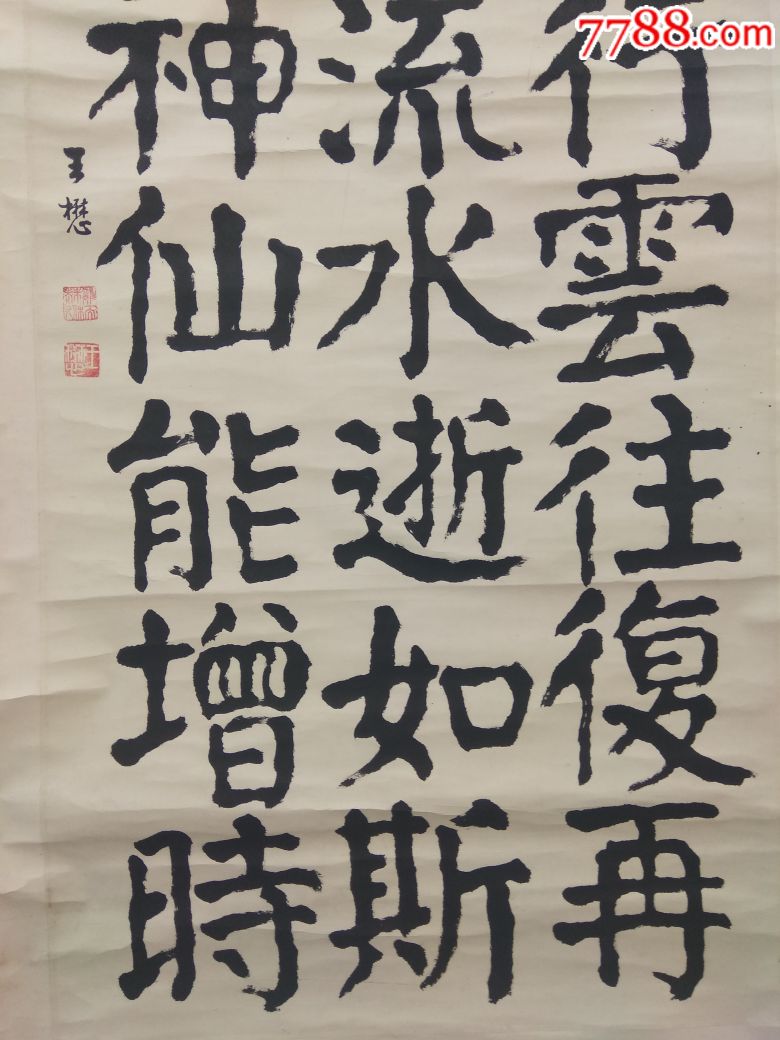 7788.com
行雲往復再
流水逝如斯
神仙能增時
王懋